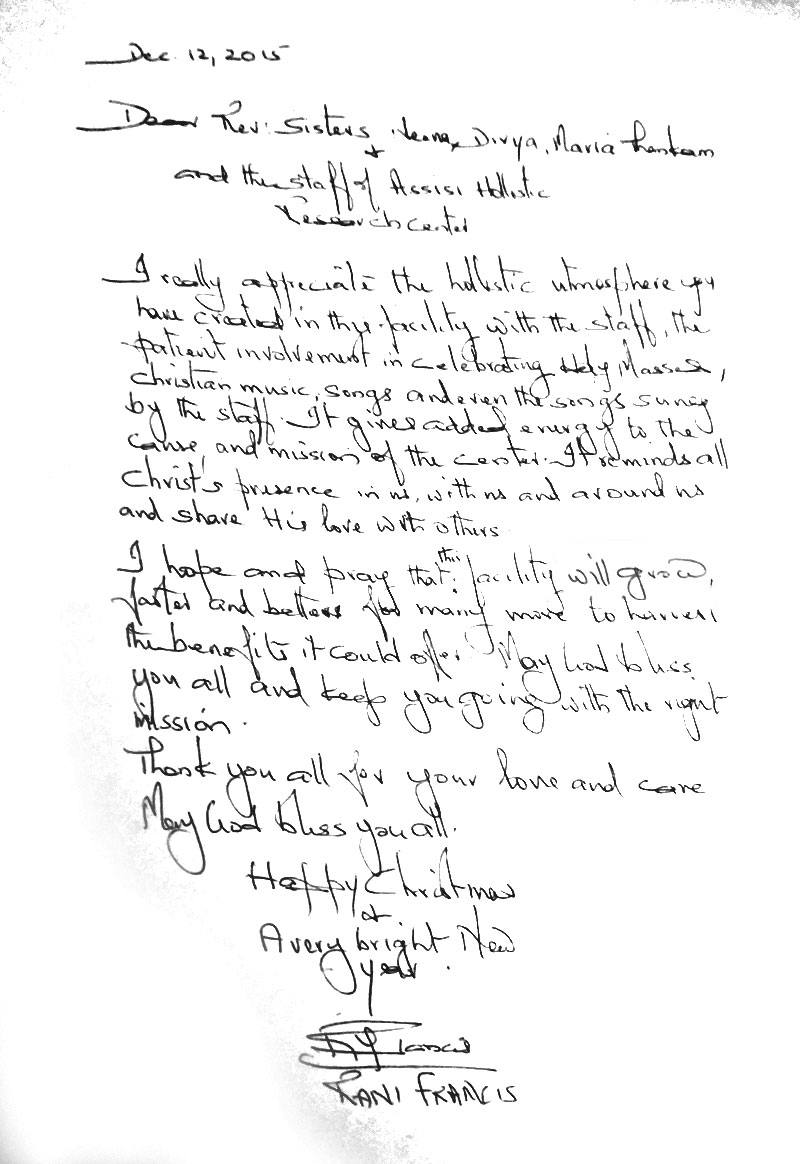 Dec. 12, 2015
Dear Rev: Sisters Jeena, Divya, Maria Thankam
+
and the staff of Assisi Holistic
Research center
I really appreciate the holistic atmosphere you
have created in this facility with the staff, the
patient involvement in celebrating Holy Masses,
Christian music, songs and even the songs sung
by the staff. It gives added energy to the
cause, and mission of the center. It reminds all
Christ's presence in us, with us and around us
and share His love with others.
I hope and pray that this facility will grow,
faster and better for many more to harvest
the benefits it could offer. May God bless
you all and keep you going with the right
mission.
Thank you all for your love and care
May God bless you all.
Happy Christmas
&
A very bright New
year.
Francis
RANI FRANCIS